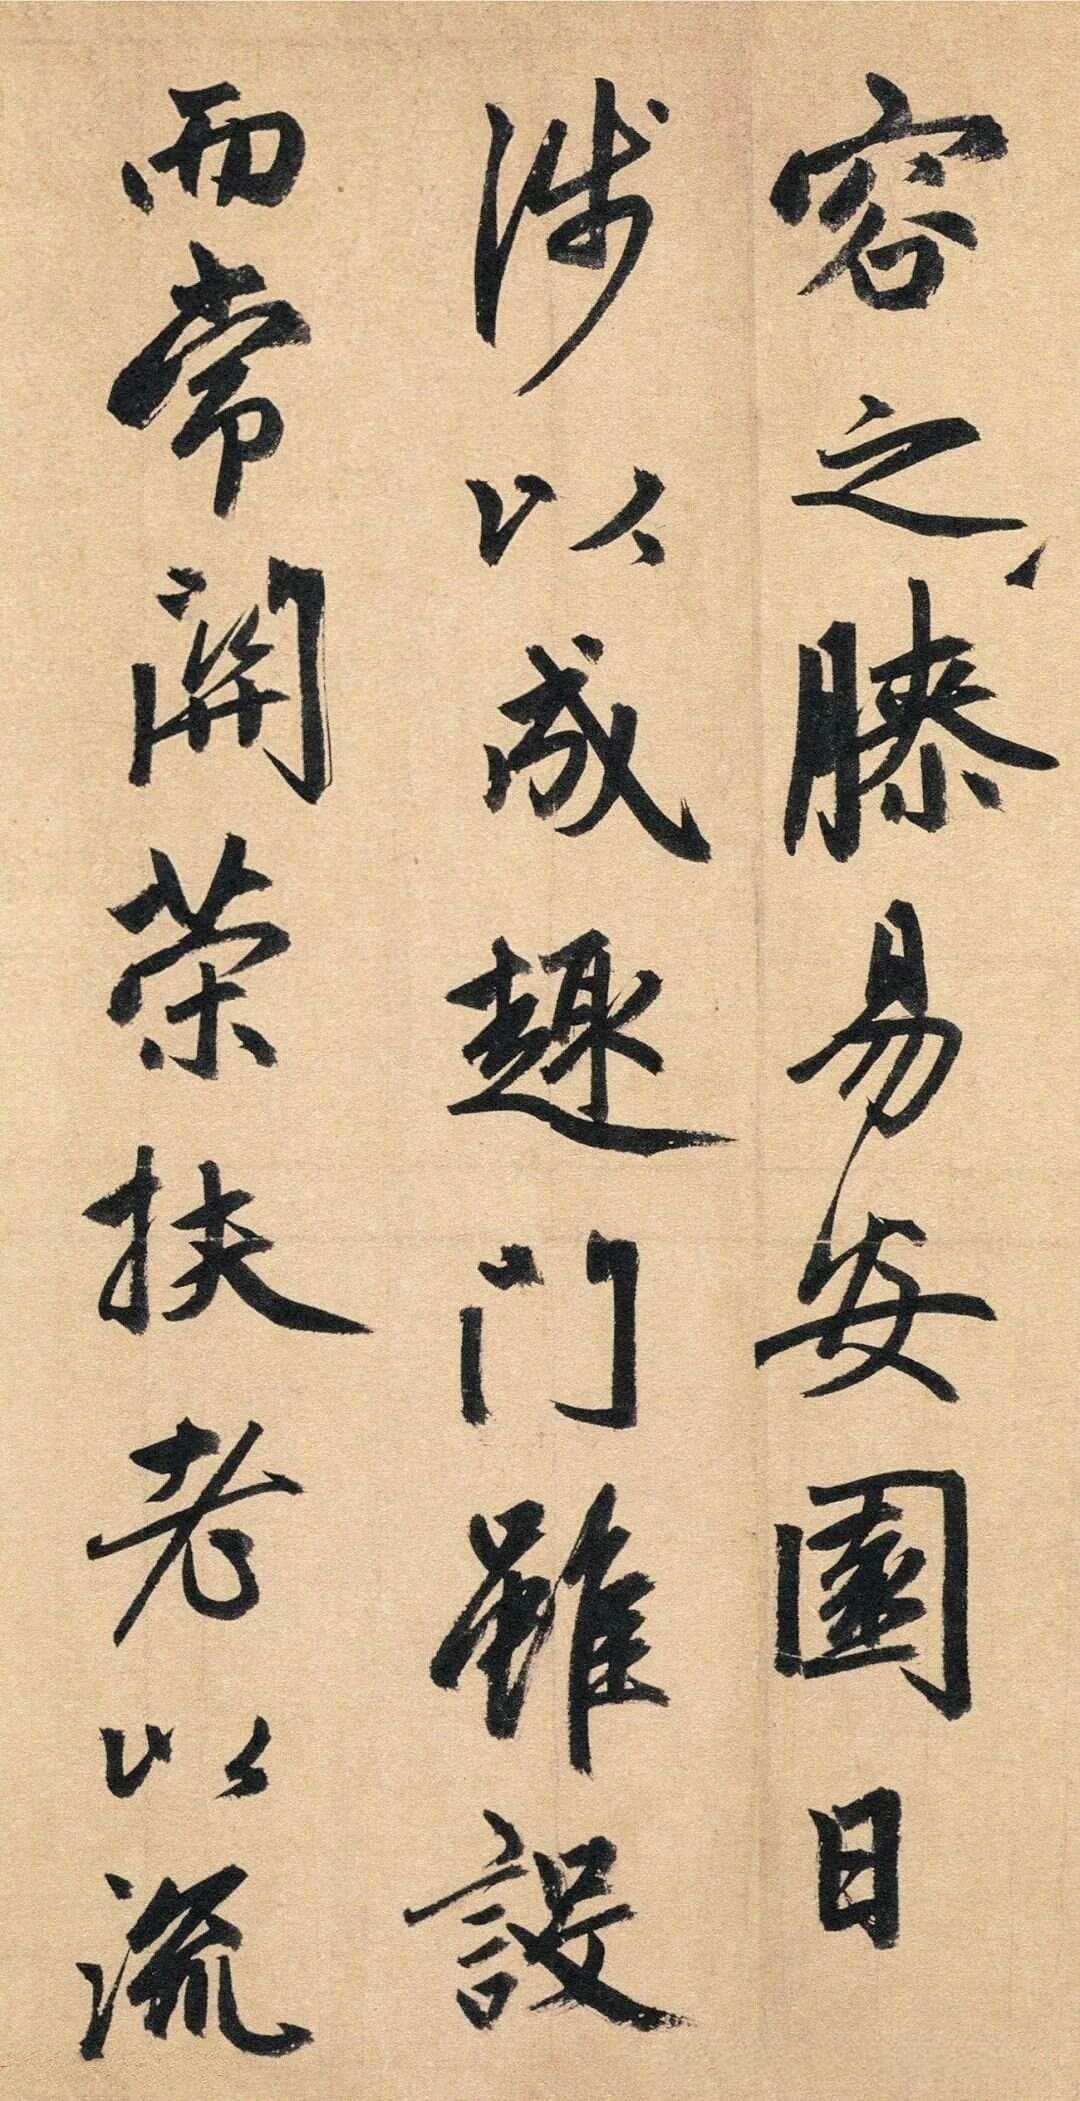 容之膝易安園日
涉以成趣門雖設
而常開策扶老以流